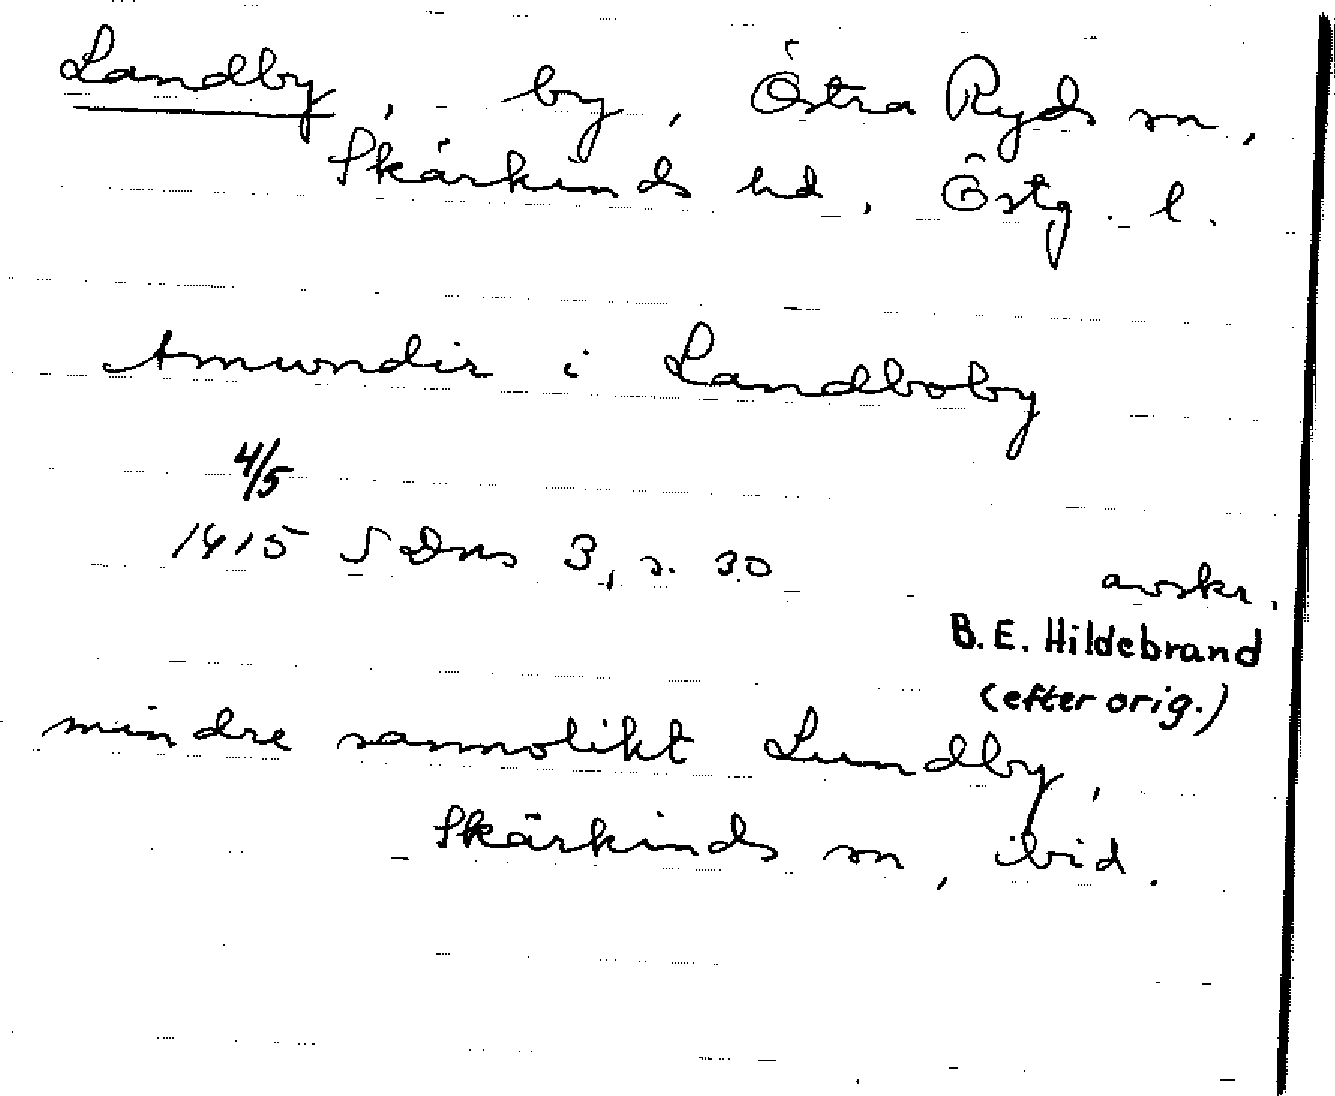 Landby, by, Östra Ryds sn,
Skärkinds hd, Östg. l.
Amundir i Landboby
4/5
1415 SDns 3, s. 30
avskr.
B. E. Hildebrand
(efter orig.)
mindre sannolikt Lundby,
Skärkinds sn, ibid.